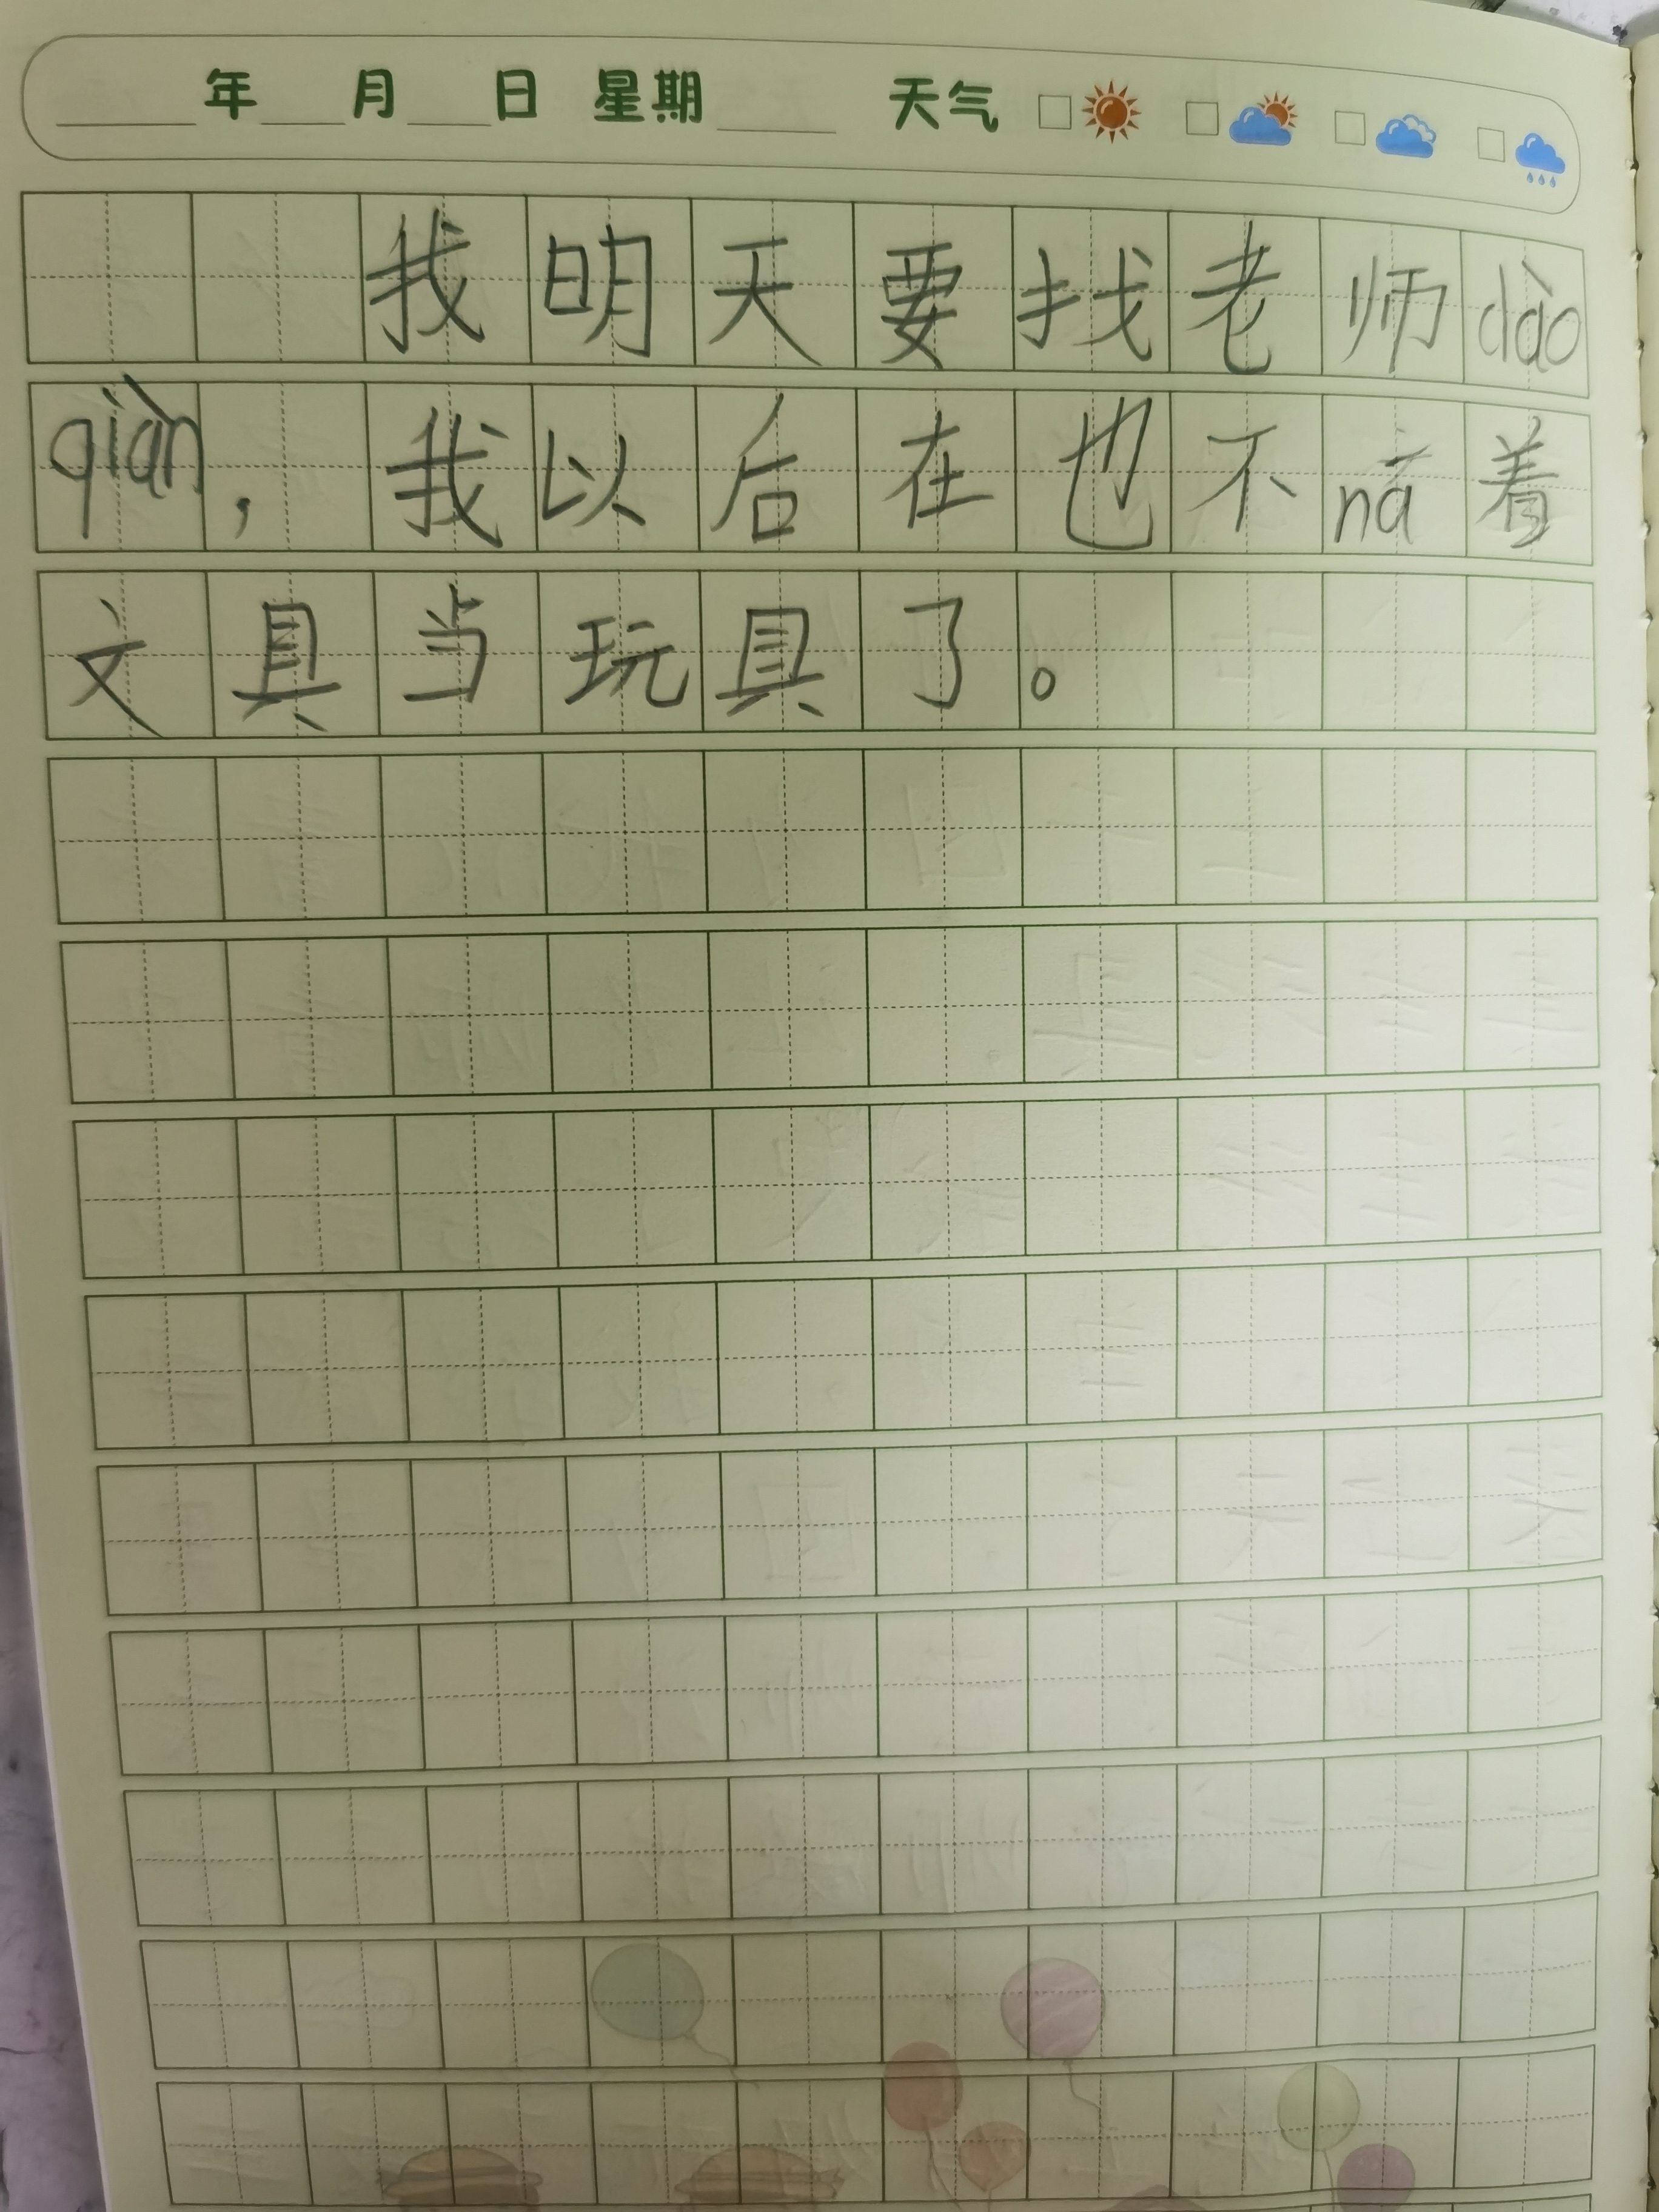 ____年___月___日 星期____ 天气
我明天要找老师dào
qiàn，我以后在也不ná着
文具当玩具了。